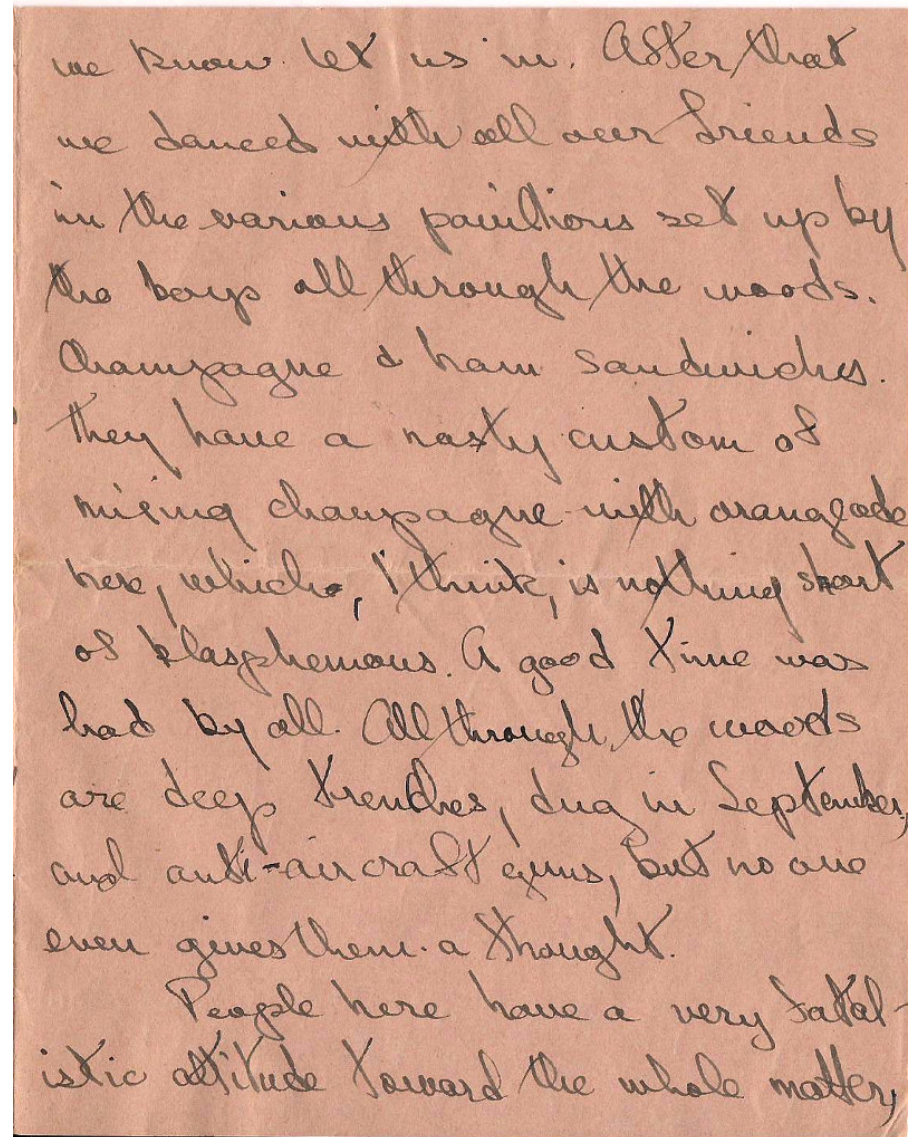 we know let us in. After that
we danced with all our friends
in the various pavilions set up by
the boys all through the woods.
Champagne & ham sandwiches.
They have a nasty custom of
mixing champagne with orangeade
here, which, I think, is nothing short
of blasphemous. A good time was
had by all. All through the woods
are deep trenches, dug in September,
and anti-aircraft guns, but no one
even gives them a thought.
People here have a very fatal-
istic attitude toward the whole matter,